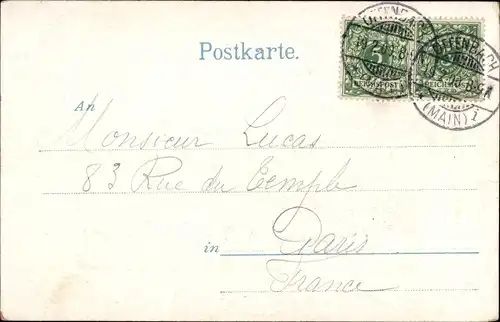 Postkarte.
OFFENBACH
OFFENBACH
(MAIN)
5
REICHSPOST
REICHSPOST
An
Monsieur Lucas
83 Rue du Temple
in Paris
France